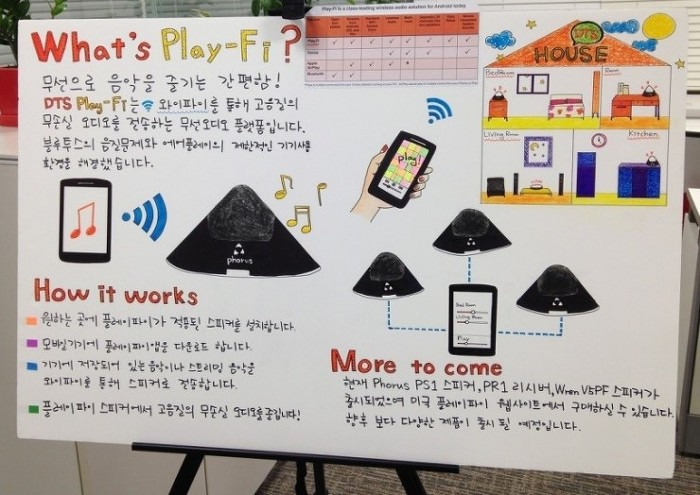 What's Play-Fi?
무선으로 음악을 즐기는 간편함!
DTS Play-Fi는 와이파이를 통해 고음질의
무손실 오디오를 전송하는 무선오디오 플랫폼입니다.
블루투스의 음질문제와 에어플레이의 제한적인 기기사용
환경을 해결했습니다.
phorus
How it works
원하는 곳에 플레이파이가 적용된 스피커를 설치합니다.
모바일기기에 플레이파이앱을 다운로드 합니다.
기기에 저장되어 있는 음악이나 스트리밍 음악을
와이파이를 통해 스피커로 전송합니다.
플레이파이 스피커에서 고음질의 무손실 오디오를 즐깁니다!
Play-Fi is a class-leading wireless audio solution for Android today
Play-Fi
Sonos
Apple AirPlay
Bluetooth
play!
DTS
HOUSE
Bedroom
Room
Living Room
Kitchen
Bed Room
Living Room
More to come
현재 Phorus PS1 스피커, PR1 리시버, Wren V5PF 스피커가
출시되었으며 미국 플레이파이 웹사이트에서 구매하실 수 있습니다.
향후 보다 다양한 제품이 출시 될 예정입니다.